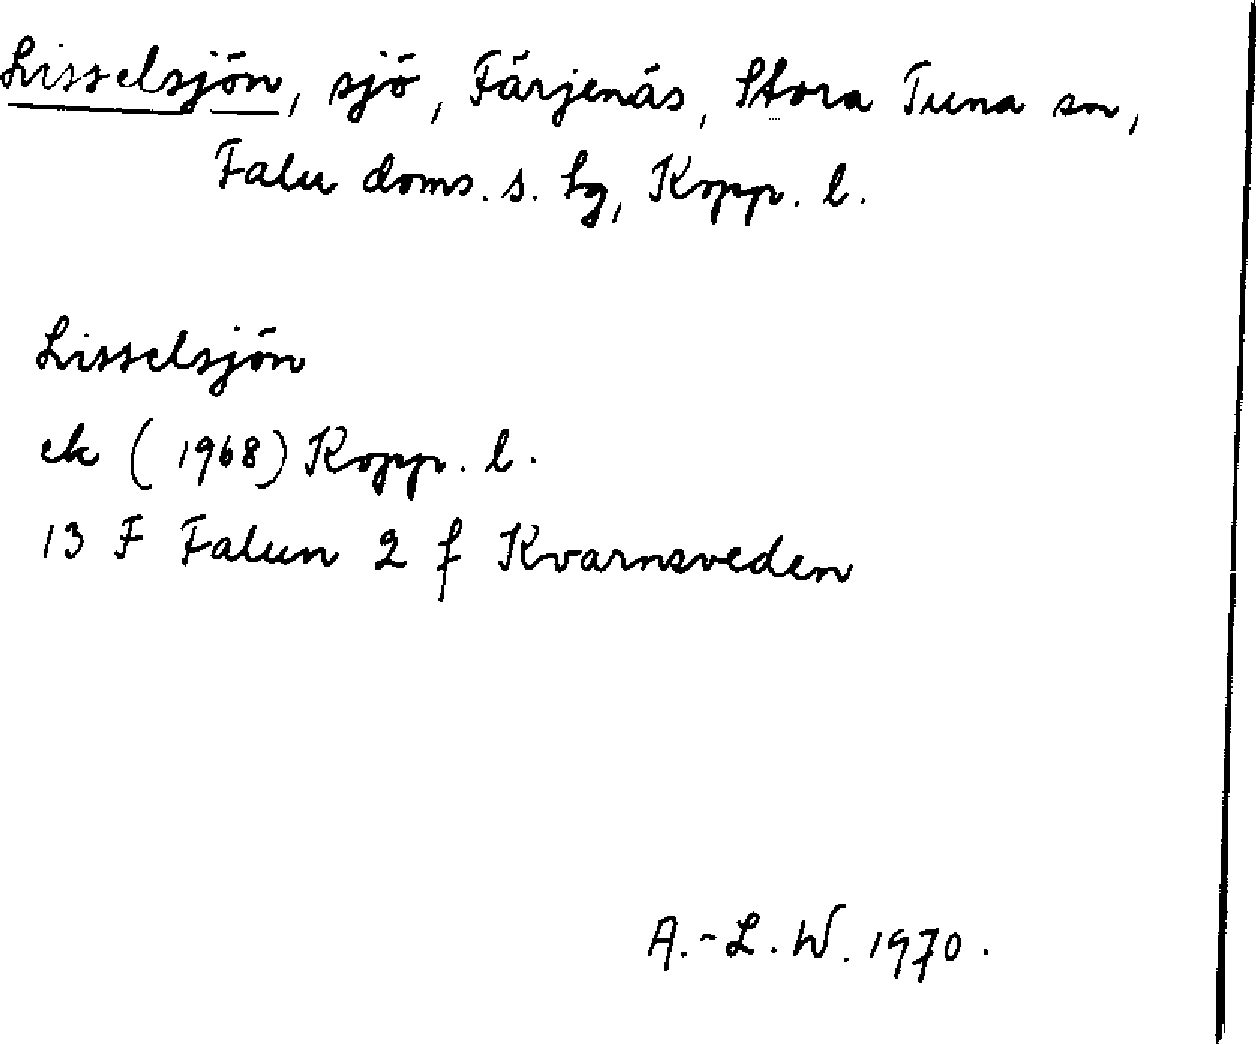 Lisselsjön, sjö, Färjenäs, Stora Tuna sn,
Falu doms. s. hg, Kopp. l.
Lisselsjön
ek (1968) Kopp. l.
13 F Falun 2 f Kvarnsveden
A.-L. W. 1970.